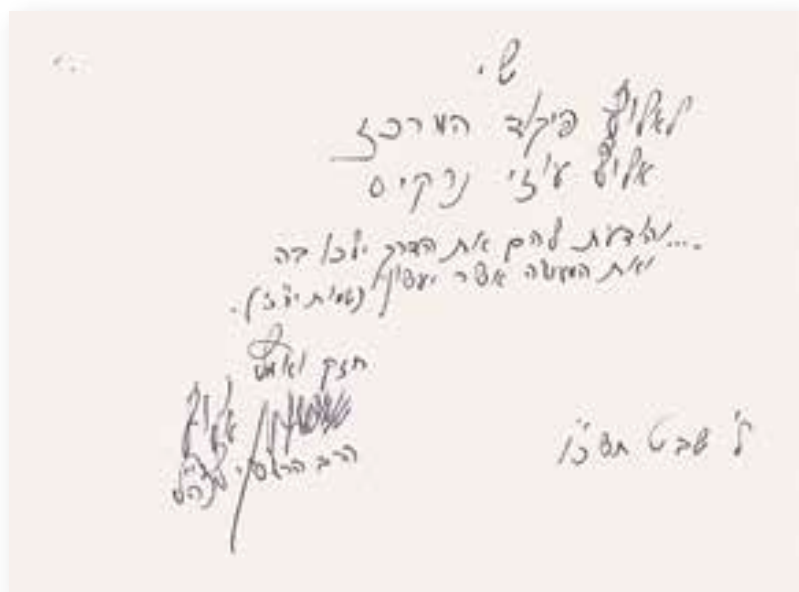 שי
לאלוף פיקוד המרכז
אלוף עוזי נרקיס
...והודעת להם את הדרך ילכו בה
ואת המעשה אשר יעשון (שמות י"ח).
חזק ואמץ
אלוף
הרב הראשי לצה"ל
ל' שבט תשכ"ו